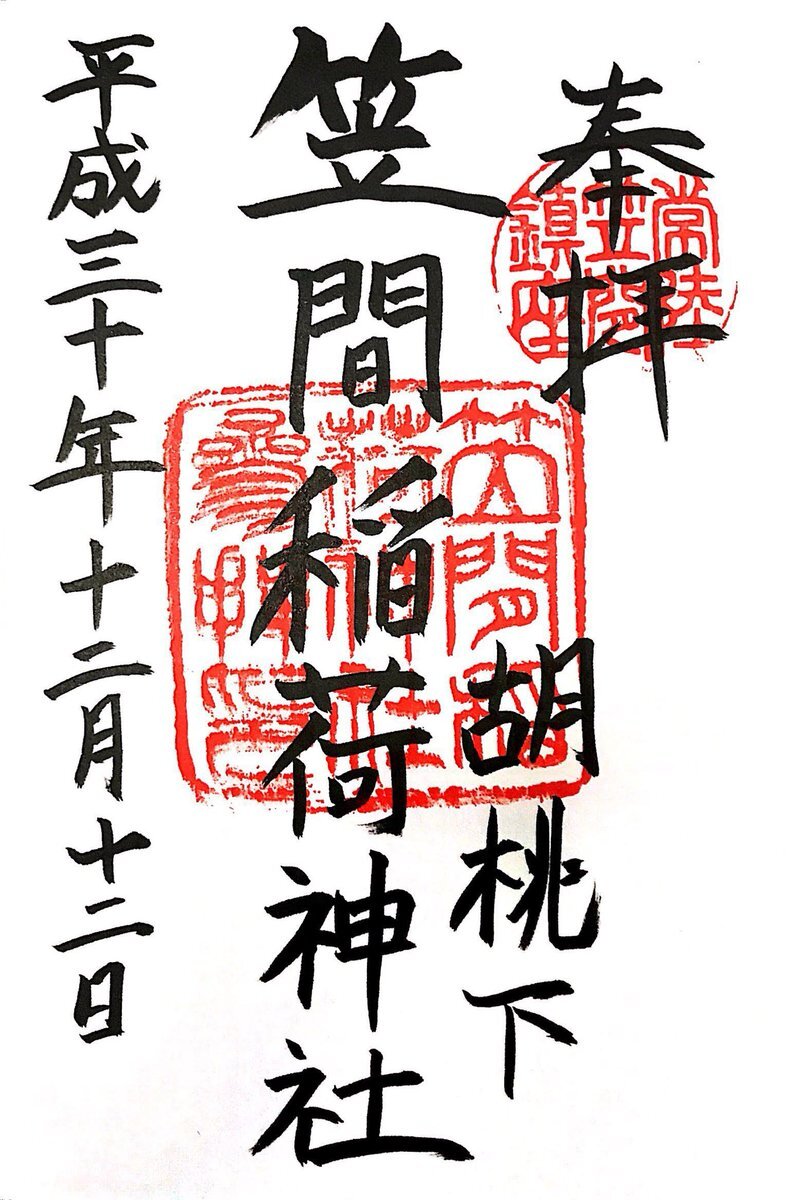 奉拝
常陸
笠間
鎮座
胡桃下
笠間稲荷神社
笠間稲
荷神社
平成三十年十二月十二日